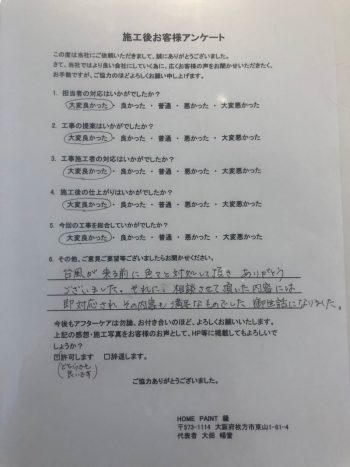 施工後お客様アンケート
この度は当社にご依頼いただきまして、誠にありがとうございました。
さて、当社ではより良い会社にしていく為に、広くお客様の声をお聞かせいただきたく、
お手数ですが、ご協力のほどよろしくお願い申し上げます。
1. 担当者の対応はいかがでしたか?
大変良かった ・ 良かった ・ 普通 ・ 悪かった ・ 大変悪かった
2. 工事の提案はいかがでしたか?
大変良かった ・ 良かった ・ 普通 ・ 悪かった ・ 大変悪かった
3. 工事施工者の対応はいかがでしたか?
大変良かった ・ 良かった ・ 普通 ・ 悪かった ・ 大変悪かった
4. 施工後の仕上がりはいかがでしたか?
大変良かった ・ 良かった ・ 普通 ・ 悪かった ・ 大変悪かった
5. 今回の工事を総合していかがでしたか?
大変良かった ・ 良かった ・ 普通 ・ 悪かった ・ 大変悪かった
6. その他、ご意見ご要望等ございましたらお聞かせください。
台風が来る前に色々と対処して頂き ありがとう
ございました。それに、相談させて頂いた内容には
即対応され その内容も満足なものでした 御世話になりました。
今後もアフターケアは勿論、お付き合いのほど、よろしくお願いいたします。
上記の感想・施工写真をお客様のお声として、HP等に掲載してもよろしいで
しょうか?
☑許可します □辞退します。
(どちらでも
良いです)
ご協力ありがとうございました。
HOME PAINT 縁
〒573-1114 大阪府枚方市東山1-61-4
代表者 大畑